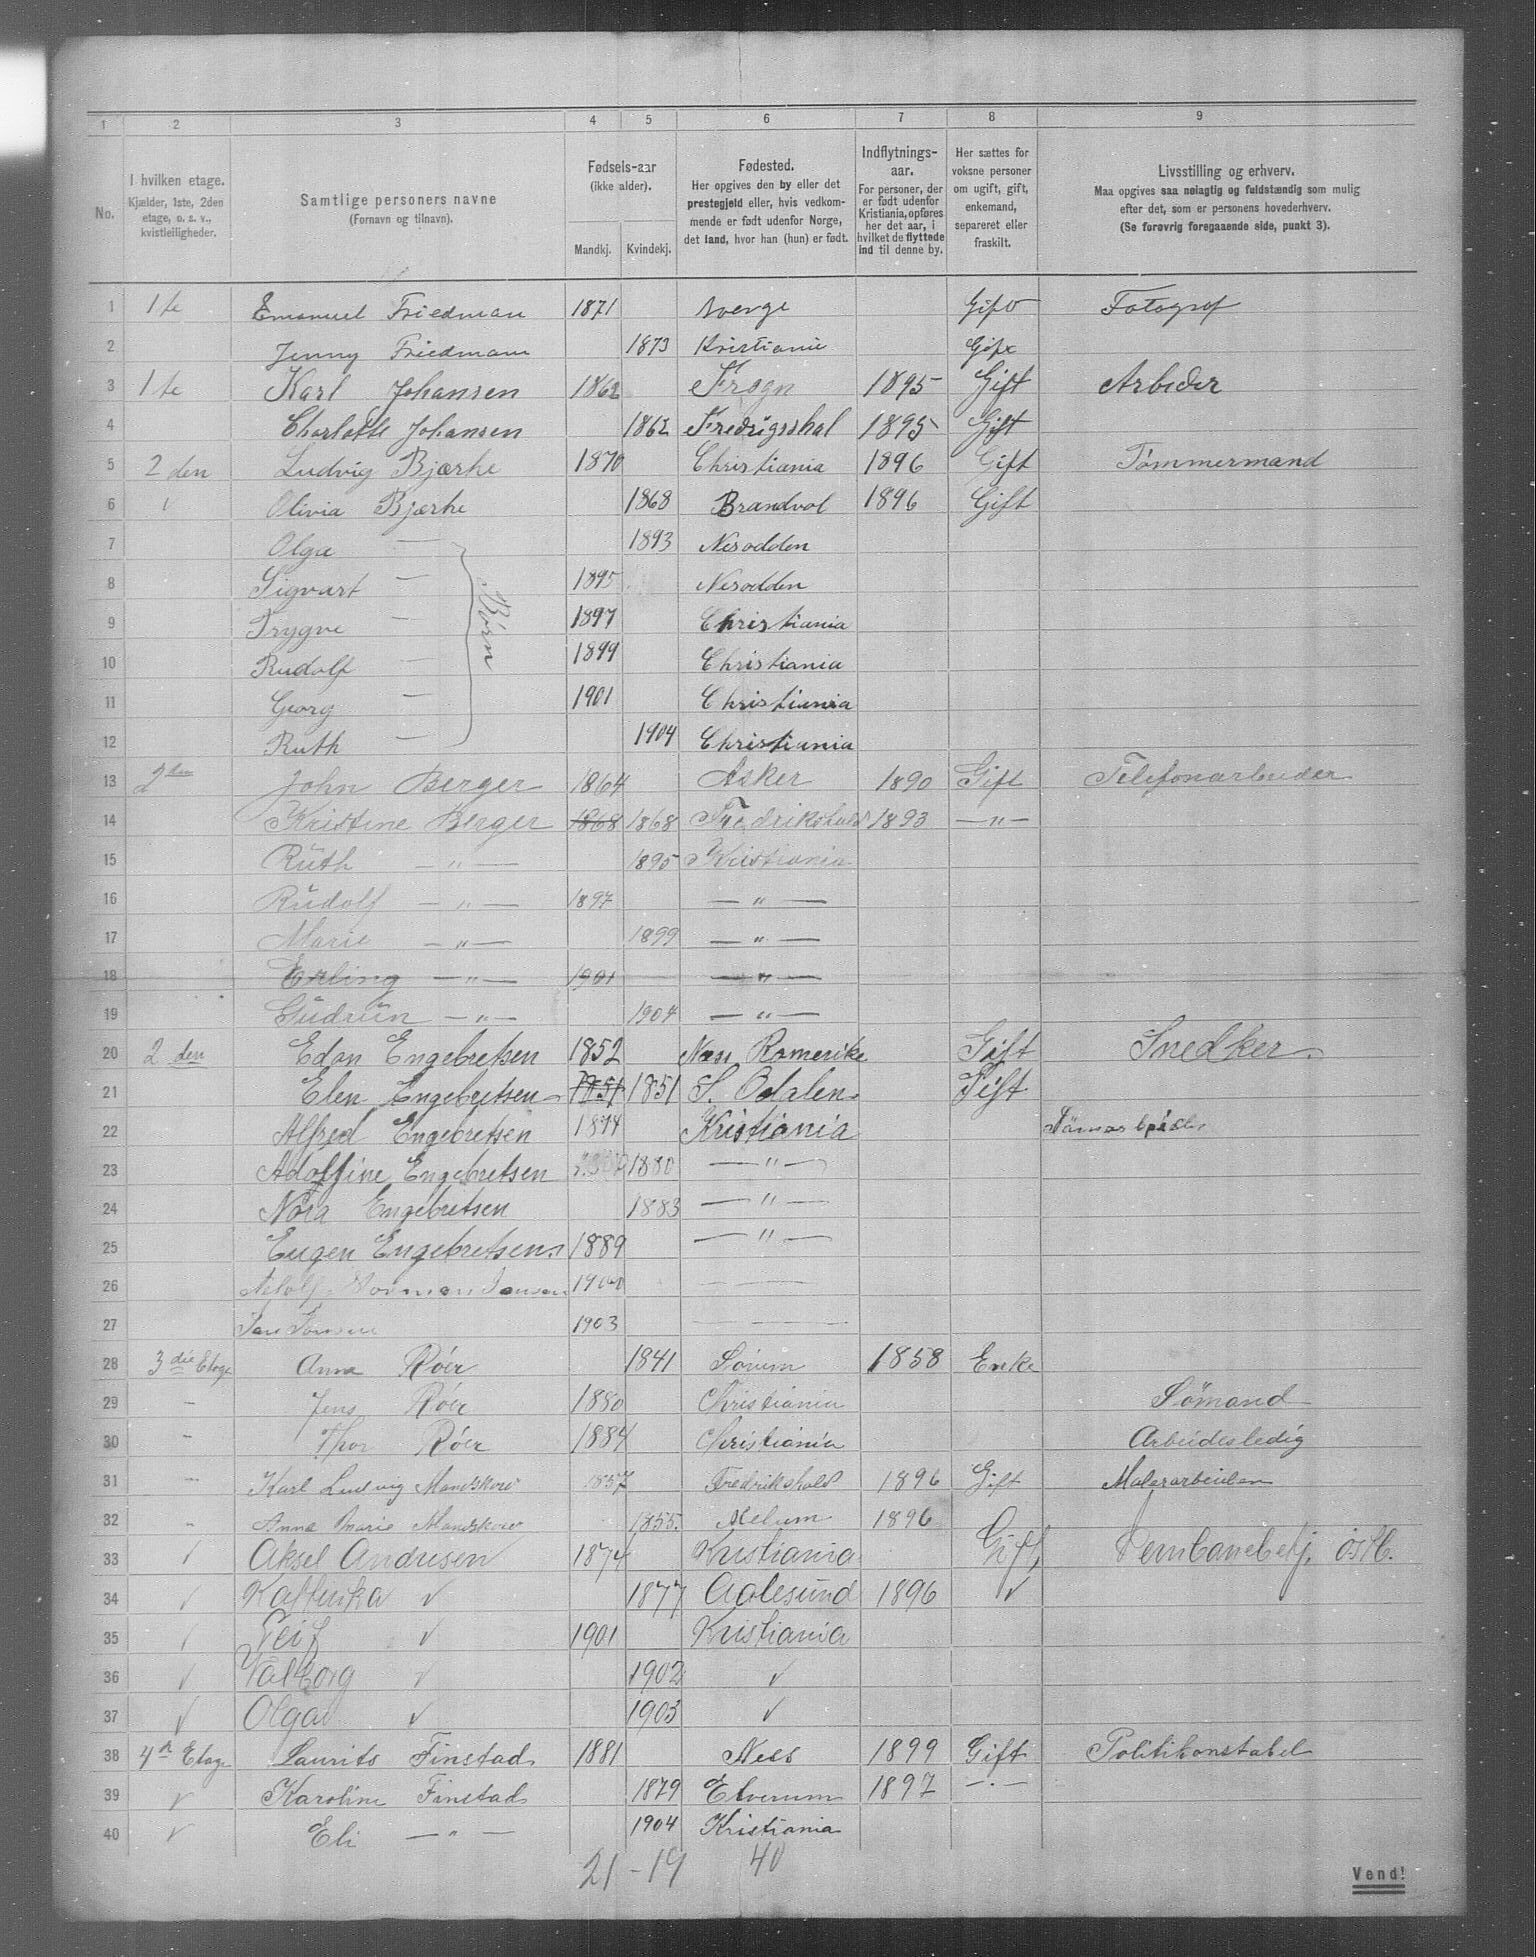 1 2 3 4 5 6 7 8 9
No. I hvilken etage. Kjælder, 1ste, 2den etage, o. s. v., kvistleiligheder. Samtlige personers navne (Fornavn og tilnavn). Fødsels-aar (ikke alder). Mandkj. Kvindekj. Fødested. Her opgives den by eller det prestegjeld eller, hvis vedkommende er født udenfor Norge, det land, hvor han (hun) er født. Indflytnings-aar. For personer, der er født udenfor Kristiania, opføres her det aar, i hvilket de flyttede ind til denne by. Her sættes for voksne personer om ugift, gift, enkemand, separeret eller fraskilt. Livsstilling og erhverv. Maa opgives saa nøiagtig og fuldstændig som mulig efter det, som er personens hovederhverv. (Se forøvrig foregaaende side, punkt 3).
1 1te Emanuel Friedman 1871 Sverge Gift Fotograf
2 Jenny Friedmann 1873 Kristiania Gift
3 1te Karl Johansen 1862 Frogn 1895 Gift Arbeder
4 Charlotte Johansen 1862 Fredrigsshal 1895 Gift
5 2 den Ludvig Bjærke 1870 Christiania 1896 Gift Tømmermand
6 Olivia Bjærke 1868 Brandvol 1896 Gift
7 Olga — 1893 Nesodden
8 Sigvart — 1895 Nesodden
9 Trygve — Børn 1897 Christiania
10 Rudolf — 1899 Christiania
11 Georg — 1901 Christiania
12 Ruth — 1904 Christiania
13 2den John Berger 1864 Asker 1890 Gift Telefonarbeider
14 Kristine Berger 1868 1868 Fredrikshald 1893 — " —
15 Ruth — " — 1895 Kristiania
16 Rudolf — " — 1897 — " —
17 Marie — " — 1899 — " —
18 Erling — " — 1901 — " —
19 Gudrun — " — 1904 — " —
20 2 den Edan Engebretsen 1852 Næs Romerike Gift Snedker
21 Elen Engebretsen 1851 1851 S. Odalen Gift
22 Alfred Engebretsen 1874 Kristiania
23 Adolfine Engebretsen 1880 — " —
24 Nora Engebretsen 1883 — " —
25 Eugen Engebretsen 1889 — " —
26 Adolf Norman Jansen 1900 — —
27 1903 — —
28 3die Etage Anna Röer 1841 Sørum 1858 Enke
29 — Jens Röer 1880 Christiania Sømand
30 — Thor Röer 1884 Christiania Arbeidesledig
31 — Karl Ludvig Mandskow 1857 Fredrikshald 1896 Gift Malerarbeider
32 Anna Marie Mandskow 1855 Melum 1896
33 Aksel Andresen 1874 Kristiania Gift Jernbanebetj. østb.
34 Kathinka 1877 Aalesund 1896
35 Leif 1901 Kristiania
36 Valborg 1902
37 Olga 1903
38 4de Etage Laurits Finstad 1881 Nees 1899 Gift Politikonstabel
39 Karoline Finstad 1879 Elverum 1897 — " —
40 Eli — " — 1904 Kristiania
21 - 19 40
Vend!